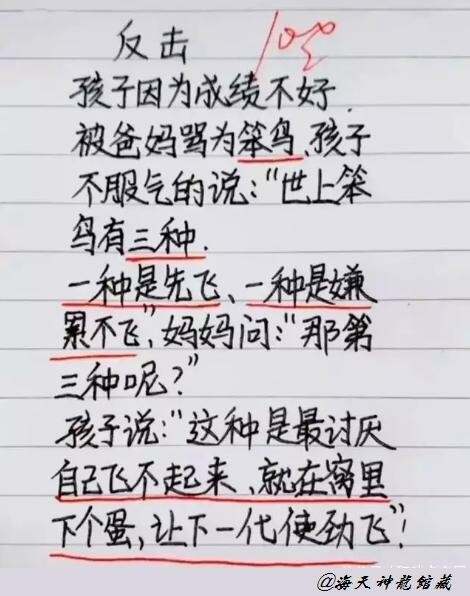 反击
孩子因为成绩不好.
被爸妈骂为笨鸟、孩子
不服气的说:“世上笨
鸟有三种.
一种是先飞、一种是嫌
累不飞”,妈妈问:“那第
三种呢?”
孩子说:“这种是最讨厌
自己飞不起来、就在窝里
下个蛋,让下一代使劲飞”!
@海天神龍館藏